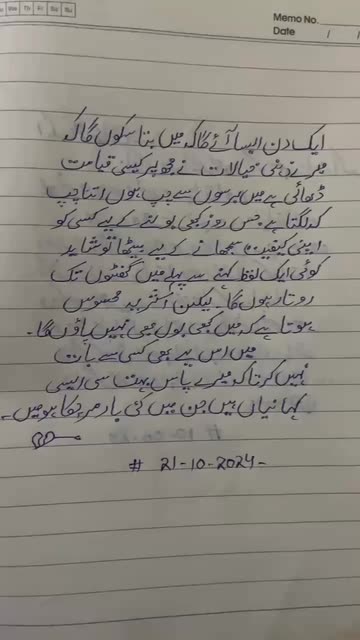 Mo Tu We Th Fr Sa Su
Memo No.
Date / /
ایک دن ایسا آئے گا کہ میں بتا سکوں گا کہ
میرے ذہنی خیالات نے مجھ پر کیسی قیامت
ڈھائی ہے میں برسوں سے چپ ہوں اتنا چپ
کہ لگتا ہے جس روز کبھی بولنے کے لیے کسی کو
اپنی کیفیت سمجھانے کے لیے بیٹھا تو شاید
کوئی ایک لفظ کہنے سے پہلے میں گھنٹوں تک
روتا رہوں گا۔ لیکن اکثر یہ محسوس
ہوتا ہے کہ میں کبھی بول بھی نہیں پاؤں گا۔
میں اس لیے بھی کسی سے بات
نہیں کرتا کہ میرے پاس بہت سی ایسی
کہانیاں ہیں جن میں کئی بار مر چکا ہوں میں۔
# 21-10-2024-